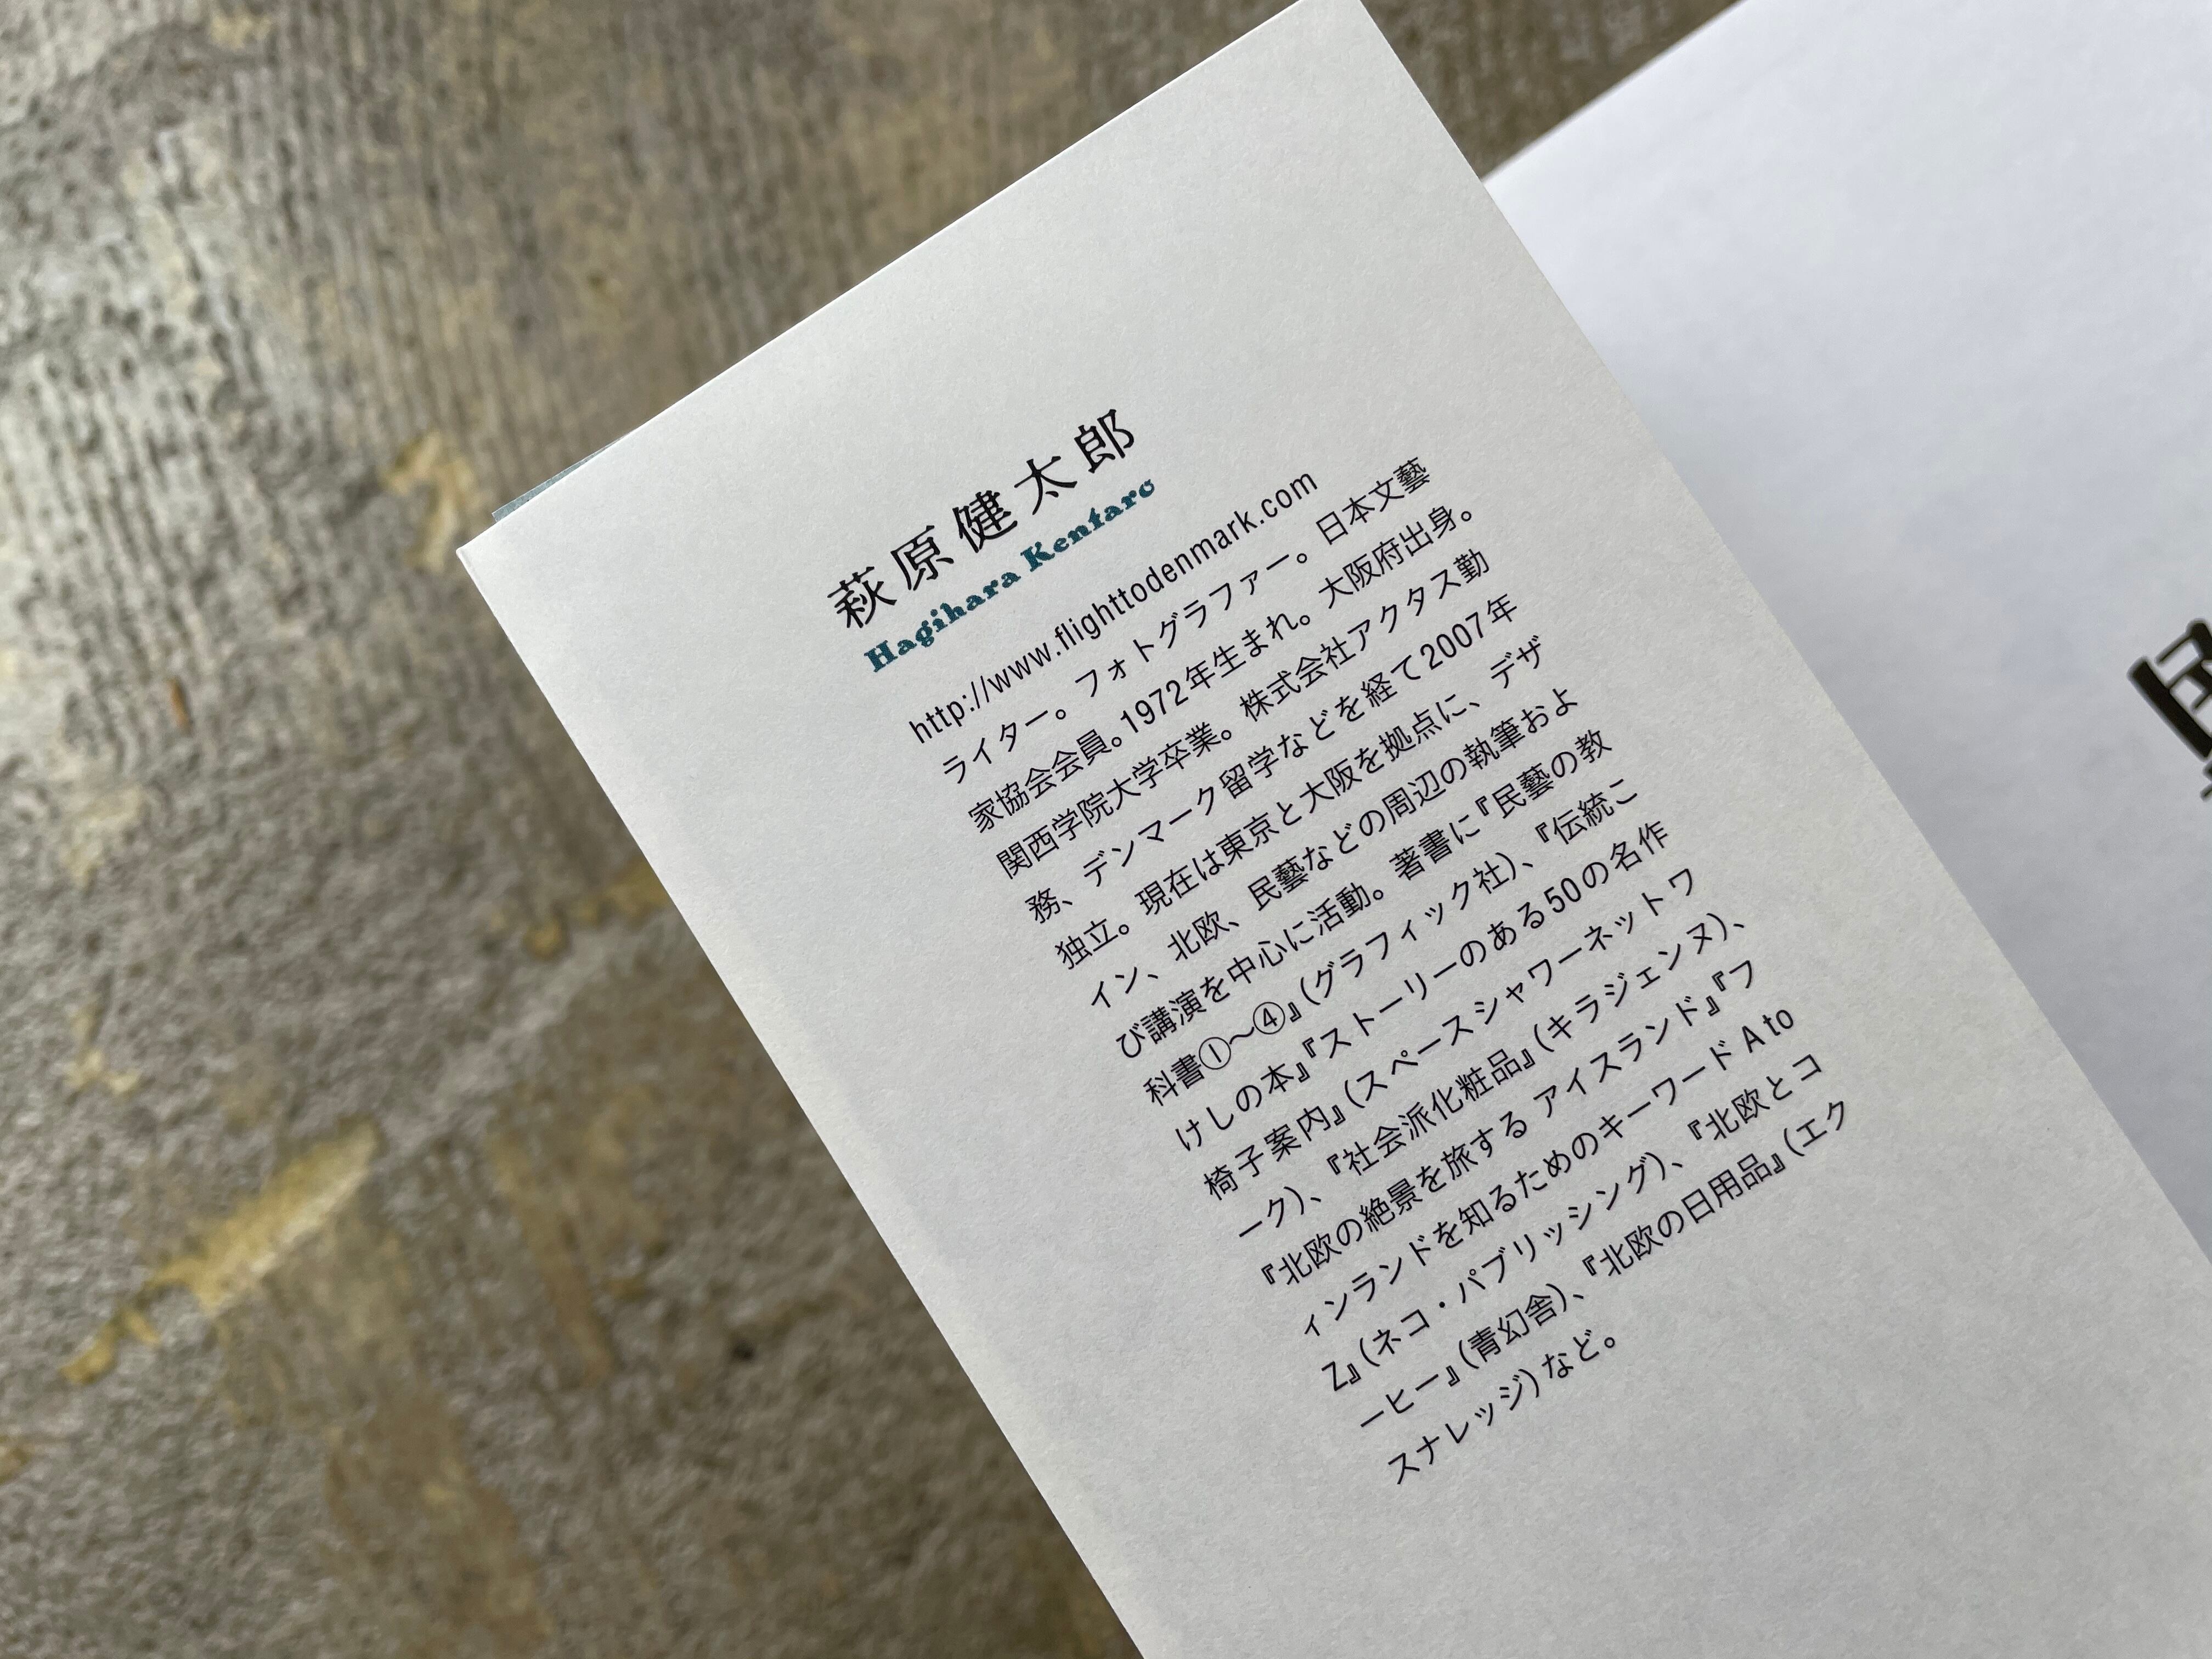 萩原健太郎
Hagihara Kentaro
http://www.flighttodenmark.com
ライター。フォトグラファー。日本文藝
家協会会員。1972年生まれ。大阪府出身。
関西学院大学卒業。株式会社アクタス勤
務、デンマーク留学などを経て2007年
独立。現在は東京と大阪を拠点に、デザ
イン、北欧、民藝などの周辺の執筆およ
び講演を中心に活動。著書に『民藝の教
科書①〜④』(グラフィック社)、『伝統こ
けしの本』『ストーリーのある50の名作
椅子案内』(スペースシャワーネットワ
ーク)、『社会派化粧品』(キラジェンヌ)、
『北欧の絶景を旅する アイスランド』『フ
ィンランドを知るためのキーワード A to
Z』(ネコ・パブリッシング)、『北欧とコ
ーヒー』(青幻舎)、『北欧の日用品』(エク
スナレッジ)など。